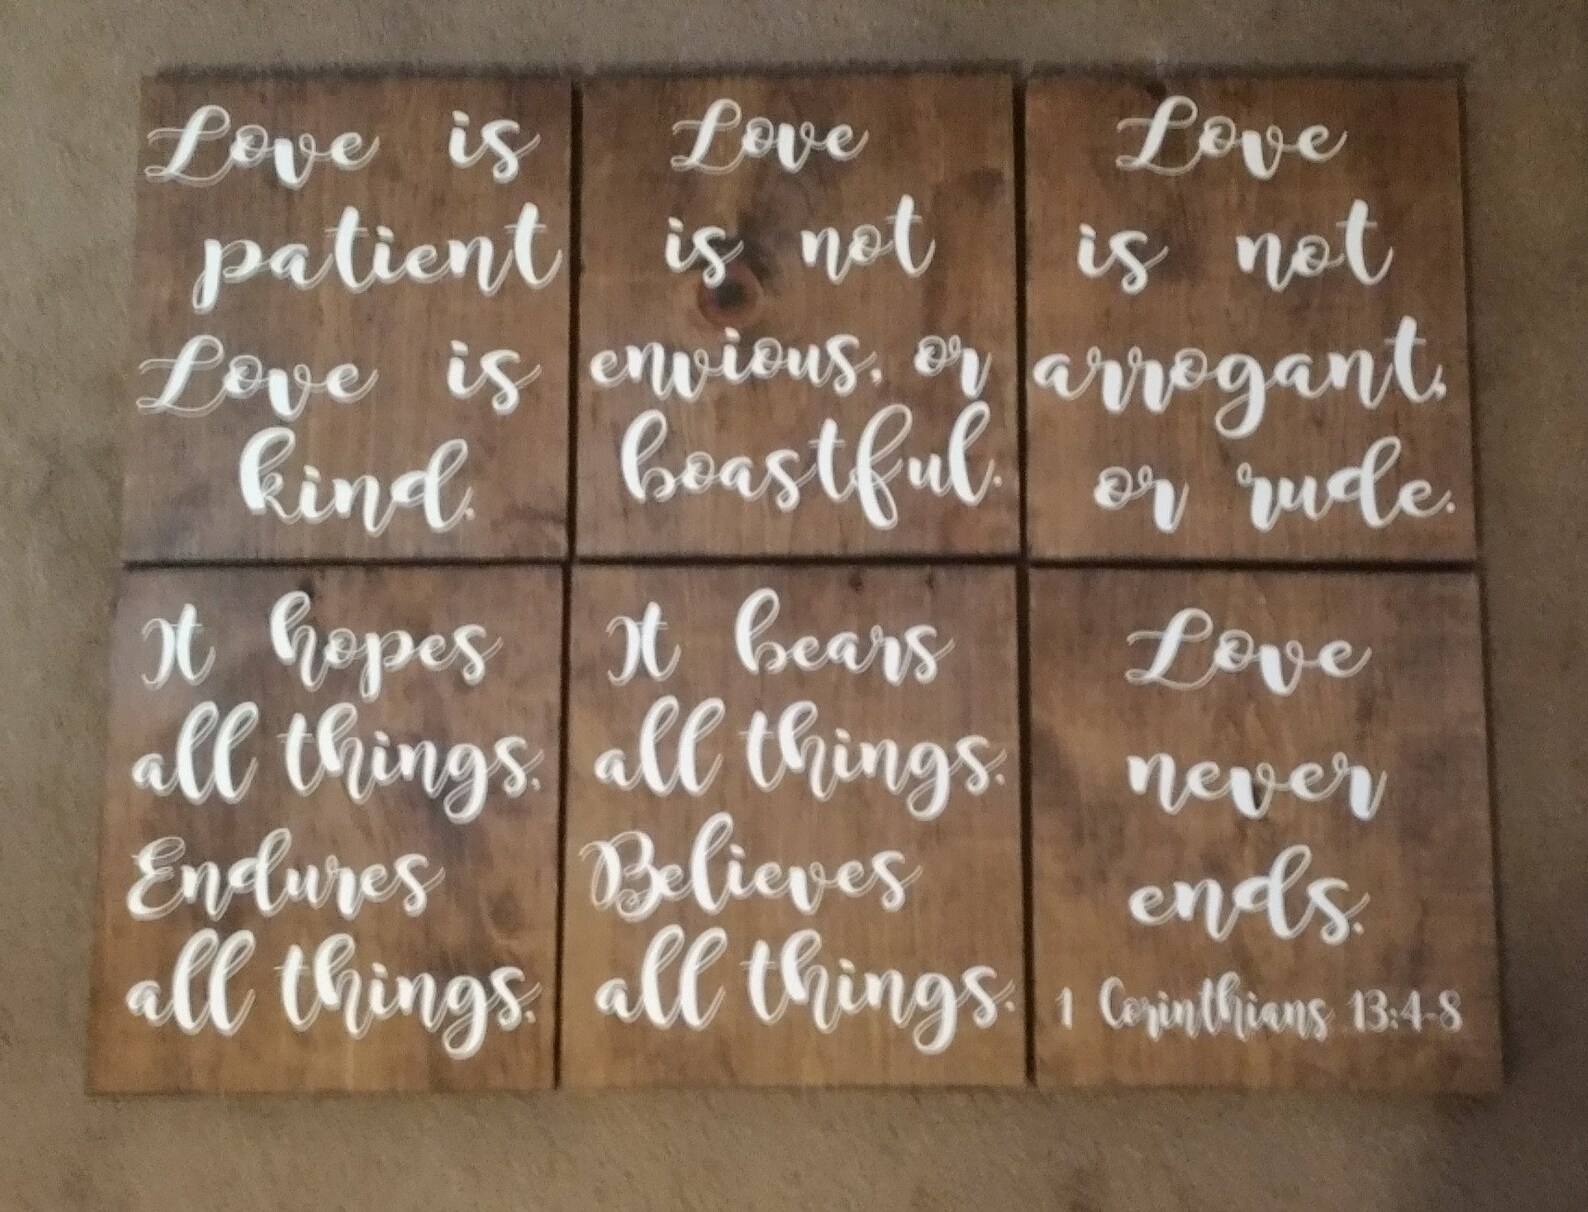 Love is
patient
Love is
kind.
Love
is not
envious, or
boastful.
Love
is not
arrogant,
or rude.
It hopes
all things.
Endures
all things.
It bears
all things.
Believes
all things.
Love
never
ends.
1 Corinthians 13:4-8